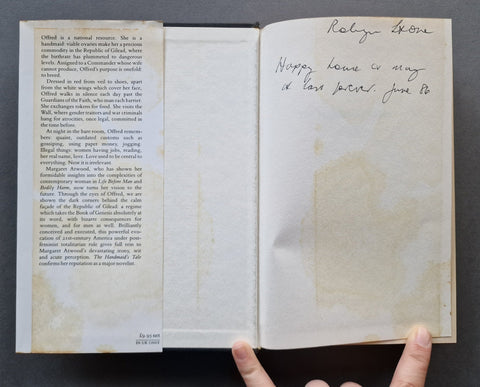 Offred is a national resource. She is a
handmaid: viable ovaries make her a precious
commodity in the Republic of Gilead, where
the birthrate has plummeted to dangerous
levels. Assigned to a Commander whose wife
cannot produce, Offred's purpose is onefold:
to breed.
Dressed in red from veil to shoes, apart
from the white wings which cover her face,
Offred walks in silence each day past the
Guardians of the Faith, who man each barrier.
She exchanges tokens for food. She visits the
Wall, where gender traitors and war criminals
hang for atrocities, once legal, committed in
the time before.
At night in the bare room, Offred remem-
bers: quaint, outdated customs such as
gossiping, using paper money, jogging.
Illegal things: women having jobs, reading,
her real name, love. Love used to be central to
everything. Now it is irrelevant.
Margaret Atwood, who has shown her
formidable insights into the complexities of
contemporary woman in Life Before Man and
Bodily Harm, now turns her vision to the
future. Through the eyes of Offred, we are
shown the dark corners behind the calm
façade of the Republic of Gilead: a regime
which takes the Book of Genesis absolutely at
its word, with bizarre consequences for
women, and for men as well. Brilliantly
conceived and executed, this powerful evo-
cation of 21st-century America under post-
feminist totalitarian rule gives full rein to
Margaret Atwood's devastating irony, wit
and acute perception. The Handmaid's Tale
confirms her reputation as a major novelist.
£9.95 net
IN UK ONLY
Robyn
Happy house may
it last forever. June 86